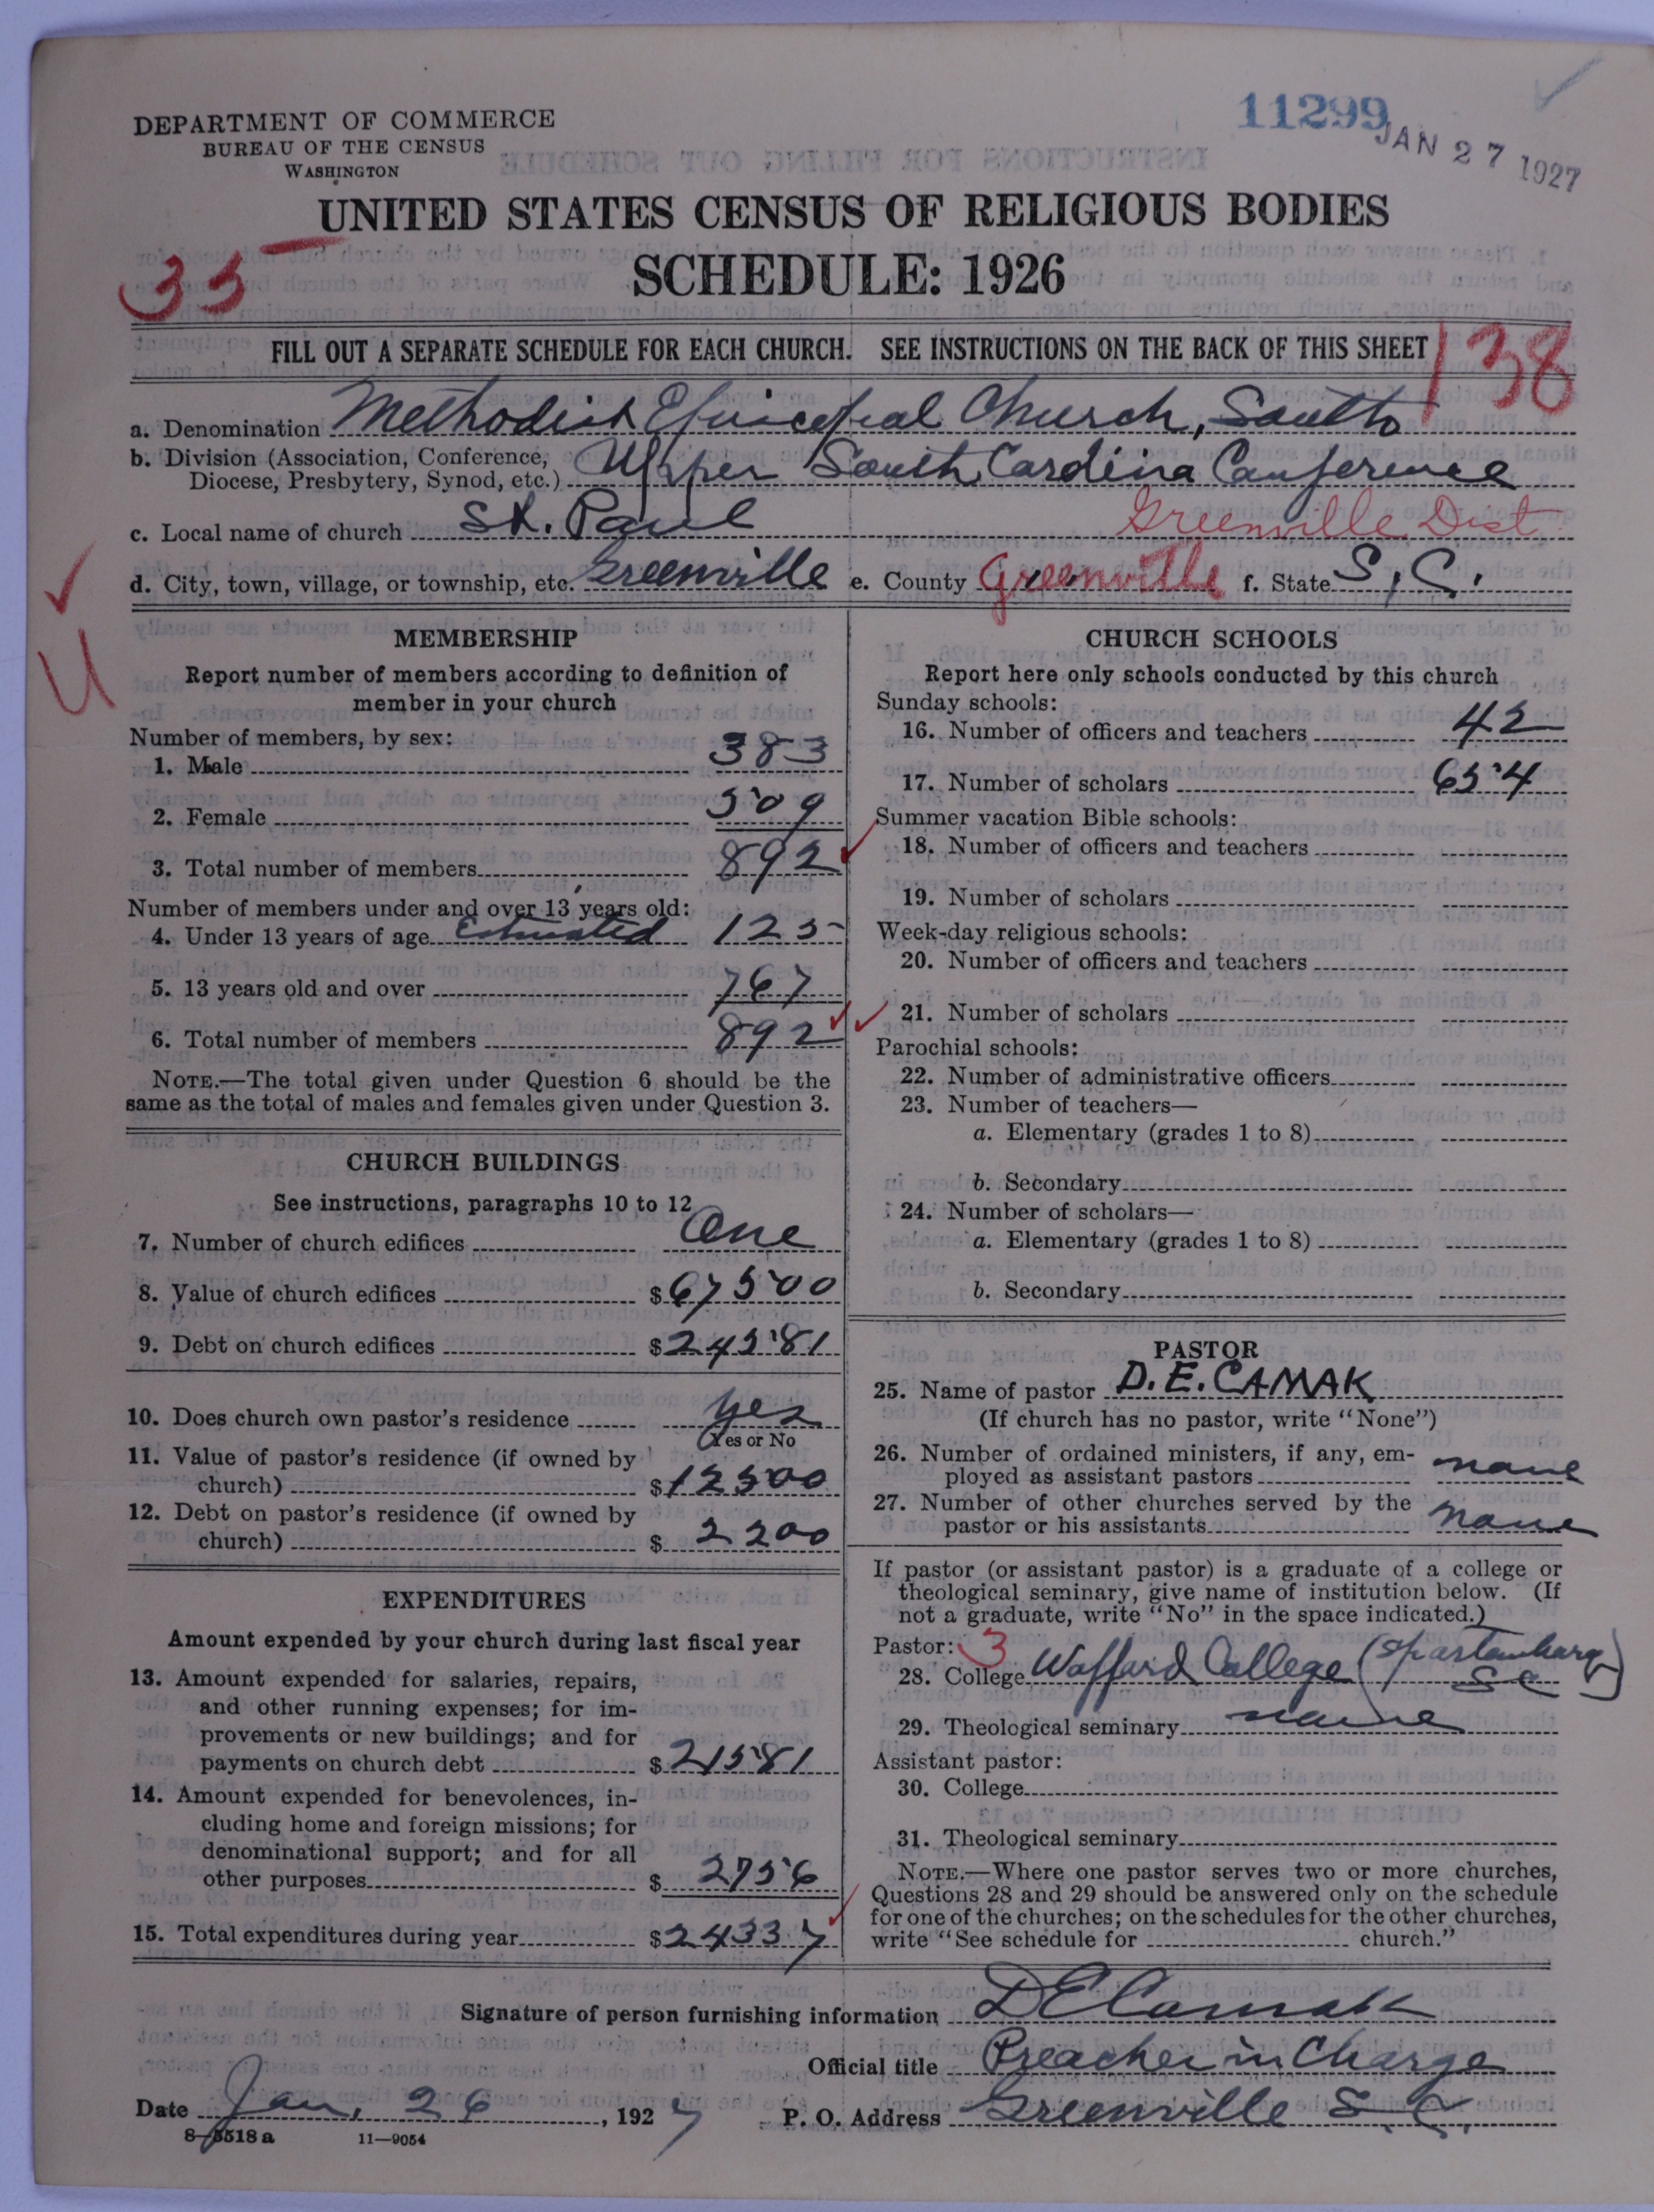 11299
JAN 27 1927
DEPARTMENT OF COMMERCE
BUREAU OF THE CENSUS
WASHINGTON
UNITED STATES CENSUS OF RELIGIOUS BODIES
35
SCHEDULE: 1926
FILL OUT A SEPARATE SCHEDULE FOR EACH CHURCH. SEE INSTRUCTIONS ON THE BACK OF THIS SHEET
138
a. Denomination Methodist Episcopal Church, South
b. Division (Association, Conference, Diocese, Presbytery, Synod, etc.) Upper South Carolina Conference
c. Local name of church St. Paul Greenville Dist.
d. City, town, village, or township, etc. Greenville e. County Greenville f. State S. C.
U
MEMBERSHIP
Report number of members according to definition of
member in your church
Number of members, by sex:
1. Male 383
2. Female 509
3. Total number of members 892
Number of members under and over 13 years old:
4. Under 13 years of age Estimated 125
5. 13 years old and over 767
6. Total number of members 892
NOTE.—The total given under Question 6 should be the
same as the total of males and females given under Question 3.
CHURCH BUILDINGS
See instructions, paragraphs 10 to 12
7. Number of church edifices One
8. Value of church edifices $67500
9. Debt on church edifices $24581
10. Does church own pastor's residence yes
Yes or No
11. Value of pastor's residence (if owned by
church) $12500
12. Debt on pastor's residence (if owned by
church) $2200
EXPENDITURES
Amount expended by your church during last fiscal year
13. Amount expended for salaries, repairs,
and other running expenses; for im-
provements or new buildings; and for
payments on church debt $21581
14. Amount expended for benevolences, in-
cluding home and foreign missions; for
denominational support; and for all
other purposes $2756
15. Total expenditures during year $24337
CHURCH SCHOOLS
Report here only schools conducted by this church
Sunday schools:
16. Number of officers and teachers 42
17. Number of scholars 654
Summer vacation Bible schools:
18. Number of officers and teachers
19. Number of scholars
Week-day religious schools:
20. Number of officers and teachers
21. Number of scholars
Parochial schools:
22. Number of administrative officers
23. Number of teachers—
a. Elementary (grades 1 to 8)
b. Secondary
24. Number of scholars—
a. Elementary (grades 1 to 8)
b. Secondary
PASTOR
25. Name of pastor D. E. CAMAK
(If church has no pastor, write "None")
26. Number of ordained ministers, if any, em-
ployed as assistant pastors none
27. Number of other churches served by the
pastor or his assistants none
If pastor (or assistant pastor) is a graduate of a college or
theological seminary, give name of institution below. (If
not a graduate, write "No" in the space indicated.)
Pastor: 3
28. College Wofford College (Spartanburg S C)
29. Theological seminary none
Assistant pastor:
30. College
31. Theological seminary
NOTE.—Where one pastor serves two or more churches,
Questions 28 and 29 should be answered only on the schedule
for one of the churches; on the schedules for the other churches,
write "See schedule for church."
Signature of person furnishing information D E Camak
Official title Preacher in Charge
Date Jan. 26, 1927 P. O. Address Greenville S. C.
8—5518 a 11—9054